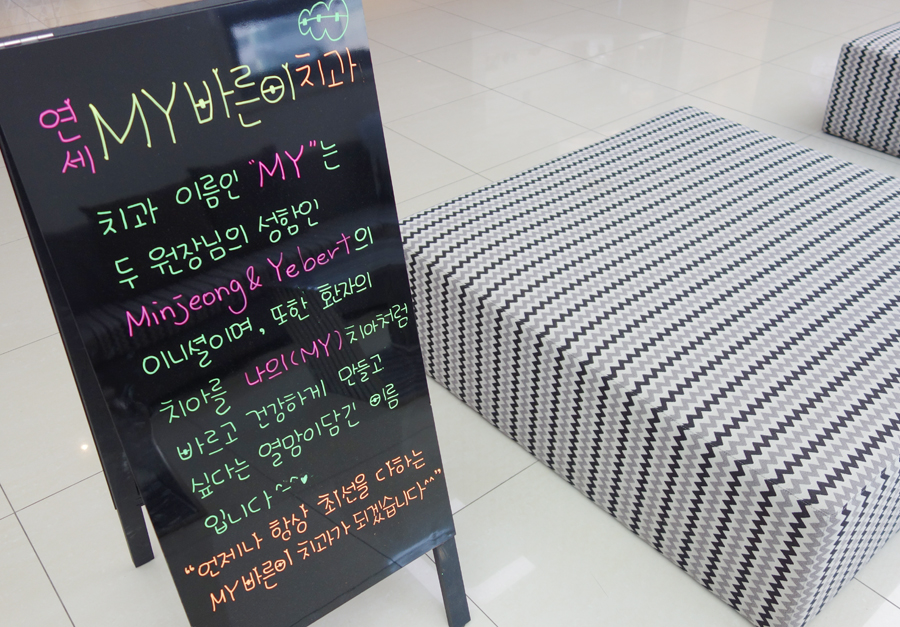 연세 MY 바른이치과
치과 이름인 "MY"는
두 원장님의 성함인
Minjeong & Yebert의
이니셜이며, 또한 환자의
치아를 나의(MY) 치아처럼
바르고 건강하게 만들고
싶다는 열망이 담긴 이름
입니다 ^~^♥
"언제나 항상 최선을 다하는
MY바른이 치과가 되겠습니다^^"